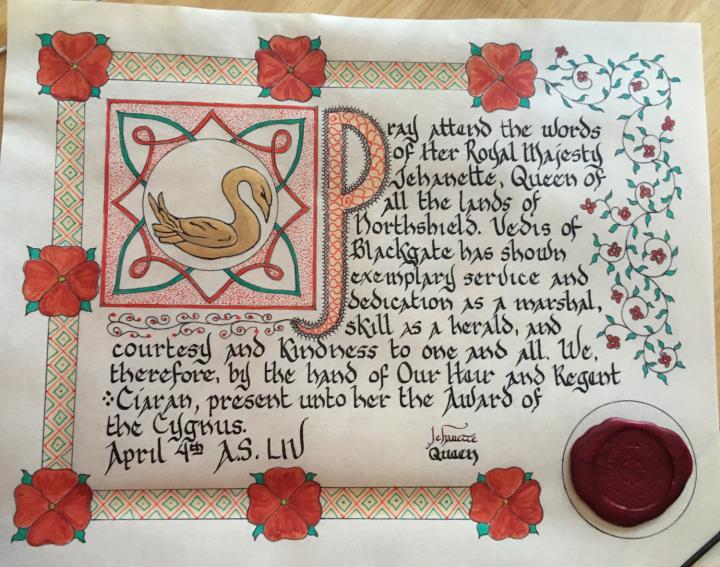 Pray attend the words
of Her Royal Majesty
Jehanette, Queen of
all the lands of
Northshield. Vedis of
Blackgate has shown
exemplary service and
dedication as a marshal,
skill as a herald, and
courtesy and kindness to one and all. We,
therefore, by the hand of Our Heir and Regent
Ciaran, present unto her the Award of
the Cygnus.
April 4th A.S. LIV
Jehanette
Queen